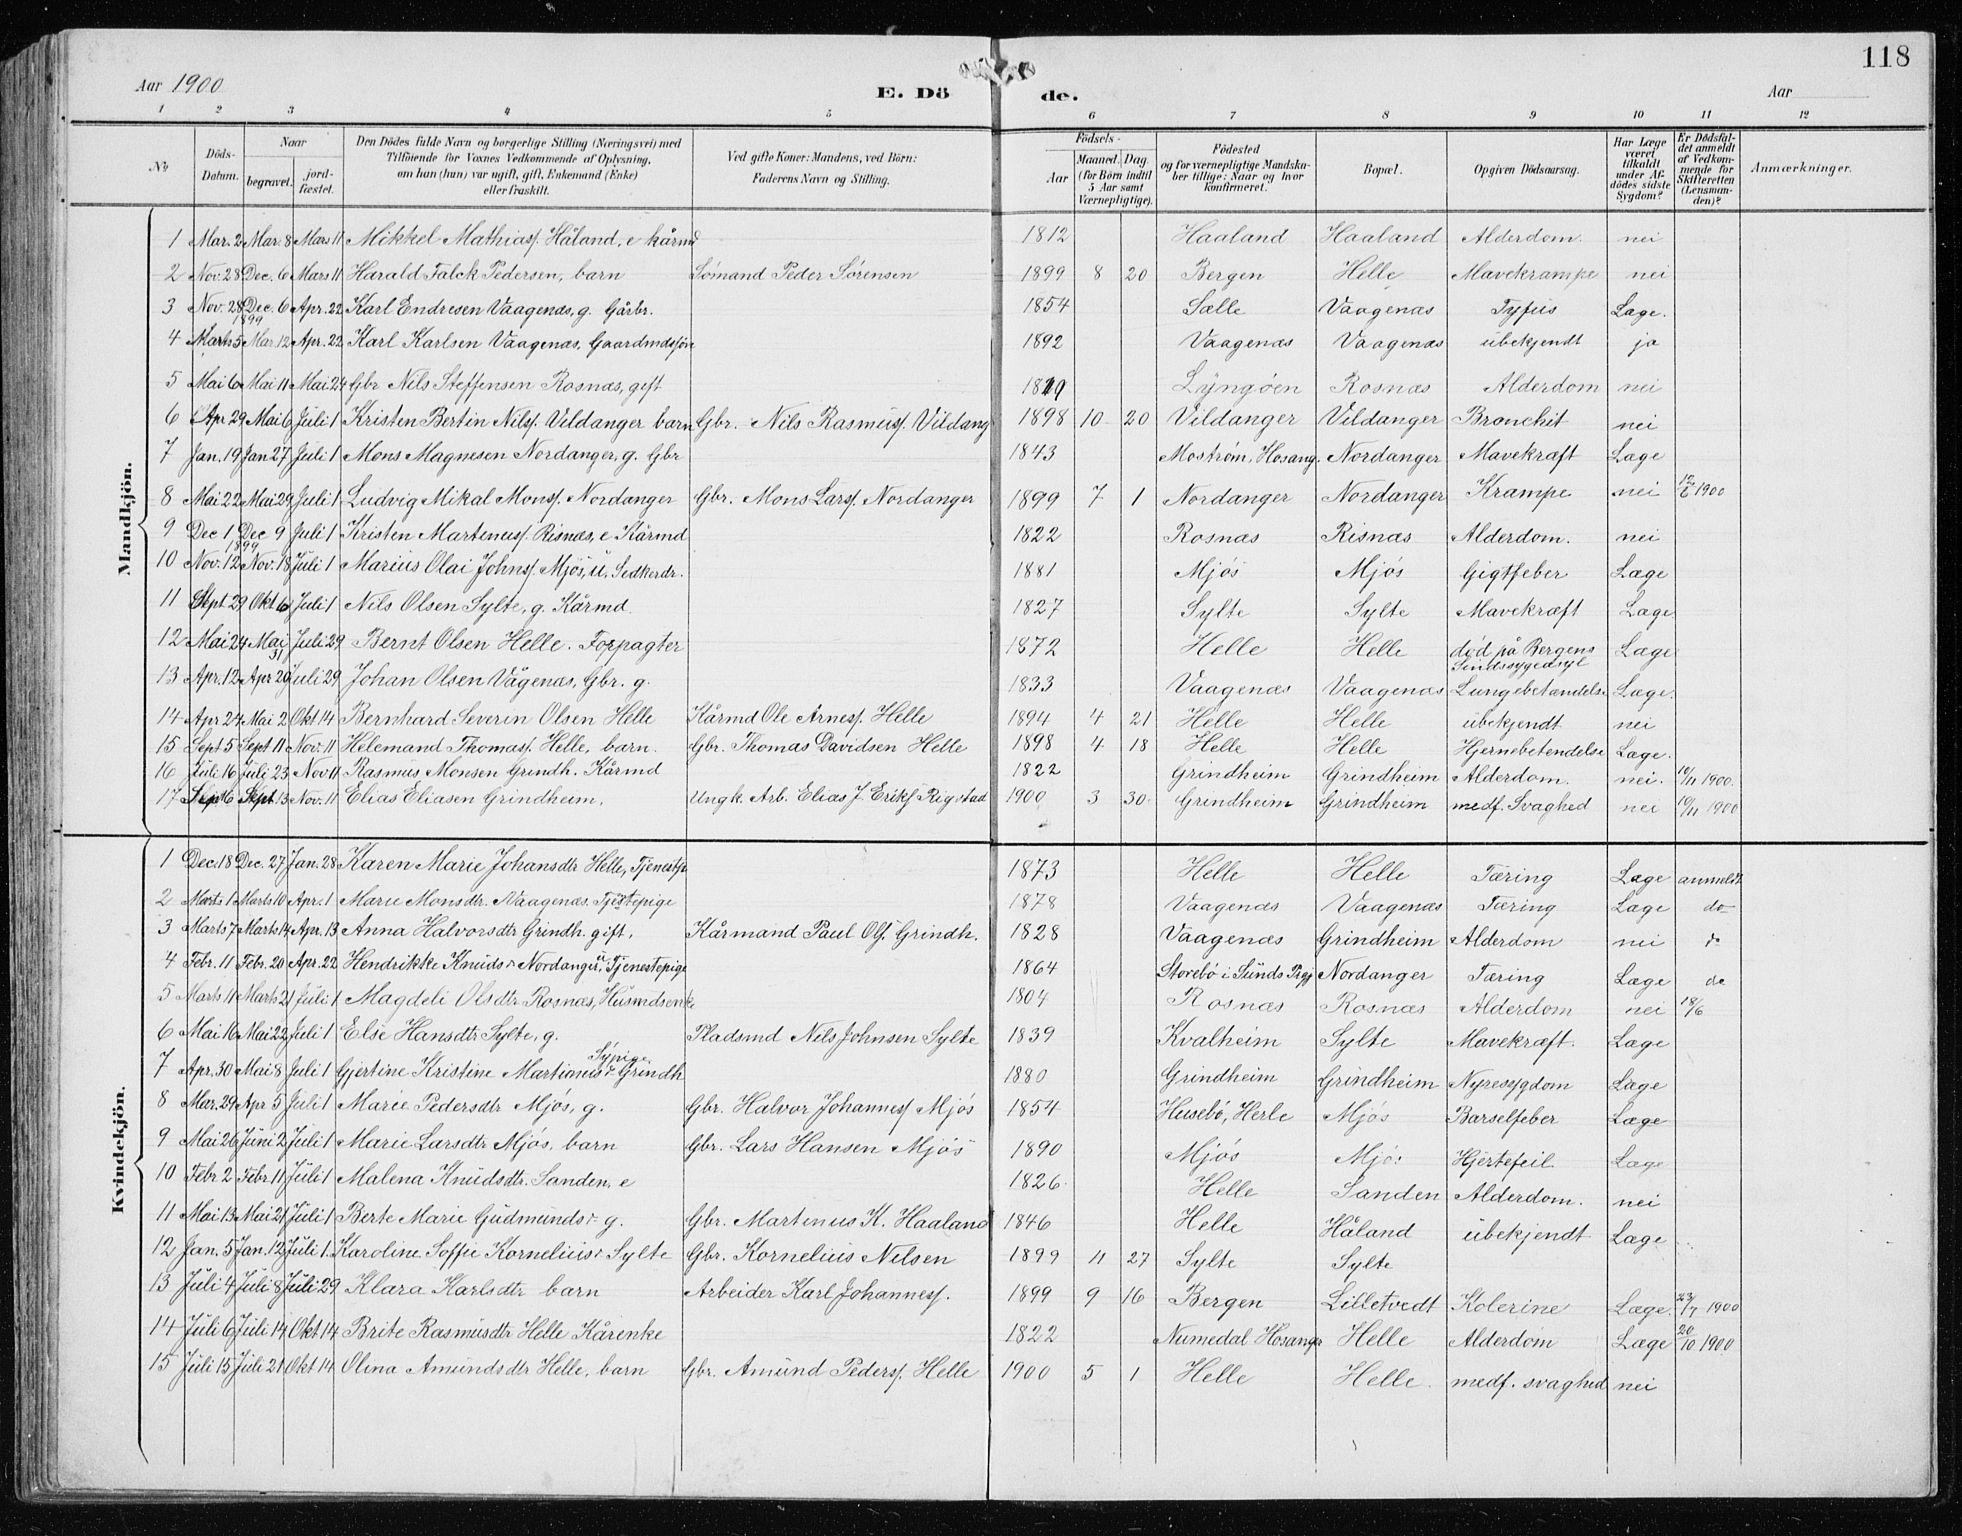 118
Aar 1900
E. Dö de.
Aar
1 2 3 4 5 6 7 8 9 10 11 12
No.
Döds-Datum.
Naar begravet. jordfæstet.
Den Dödes fulde Navn og borgerlige Stilling (Næringsvei) med Tilföiende for Voxnes Vedkommende af Oplysning, om han (hun) var ugift, gift, Enkemand (Enke) eller fraskilt.
Ved gifte Koner: Mandens, ved Börn: Faderens Navn og Stilling.
Födsels- Aar Maaned. Dag. (for Börn indtil 5 Aar samt Værnepligtige).
Födested og for værnepligtige Mandskaber tillige: Naar og hvor konfirmeret.
Bopæl.
Opgiven Dödsaarsag.
Har Læge været tilkaldt under Afdödes sidste Sygdom?
Er Dödsfaldet anmeldt af Vedkommende for Skifteretten (Lensmanden)?
Anmærkninger.
Mandkjön.
1 Mar. 2 Mar 8 Mars 11 Mikkel Mathiasf. Håland, e kårmd 1812 Haaland Haaland Alderdom. nei
2 Nov. 28 Dec. 6 Mars 11 Harald Falck Pedersen, barn Sømand Peder Sørensen 1899 8 20 Bergen Helle Mavekrampe nei
3 Nov. 28 Dec. 6 1899 Apr. 22 Karl Endresen Vaagenæs, g. Gårbr. 1854 Sælle Vaagenæs Tyfus Læge.
4 Marts 5 Mar. 12 Apr. 22 Karl Karlsen Vaagenæs, Gaardmdssøn 1892 Vaagenæs Vaagenæs ubekjendt ja
5 Mai 6 Mai 11 Mai 24 Gbr Nils Steffensen Rosnæs, gift Lyngøen Rosnæs Alderdom nei
6 Apr 29 Mai 6 Juli 1 Kristen Bertin Nilsf. Vildanger barn Gbr. Nils Rasmusf. Vildang 1898 10 20 Vildanger Vildanger Bronchit nei
7 Jan. 19 Jan 27 Juli 1 Mons Magnesen Nordanger, g. Gbr 1843 Mostrøm, Hosang. Nordanger Mavekræft Læge
8 Mai 22 Mai 29 Juli 1 Ludvig Mikal Monsf. Nordanger Gbr. Mons Larsf. Nordanger 1899 7 1 Nordanger Nordanger Krampe nei 12/6 1900
9 Dec 1 Dec 9 1899 Juli 1 Kristen Martenusf. Risnæs, e Kårmd 1822 Rosnæs Risnæs Alderdom. nei
10 Nov. 12 Nov. 18 Juli 1 Marius Olai Johnsf. Mjøs, u. 1881 Mjøs Mjøs Gigtfeber Læge
11 Sept 29 Okt 6 Juli 1 Nils Olsen Sylte, g. Kårmd. 1827 Sylte Sylte Mavekræft Læge
12 Mai 24 Mai 31 Juli 29 Bernt Olsen Helle. Forpagter 1872 Helle Helle død på Bergens Sindssygeasyl Læge
13 Apr. 12 Apr 20 Juli 29 Johan Olsen Vågenæs, Gbr. g. 1833 Vaagenæs Vaagenæs Lungebetændelse Læge.
14 Apr 24 Mai 2 Okt 14 Bernhard Severin Olsen Helle Kårmd Ole Arnesf. Helle 1894 4 21 Helle Helle ubekjendt nei
15 Sept 5 Sept 11 Nov. 11 Helemand Thomasf. Helle, barn. Gbr. Thomas Davidsen Helle 1898 4 18 Helle Helle Hjernebetendelse Læge.
16 Juli 16 Juli 23 Nov 11 Rasmus Monsen Grindh. Kårmd 1822 Grindheim Grindheim Alderdom. nei. 10/11 1900.
17 Sept 6 Sept 13 Nov. 11 Elias Eliasen Grindheim, Ungk. Arb. Elias J. Eriksf Rigstad 1900 3 30 Grindheim Grindheim medf. Svaghed nei 10/11 1900
Kvindekjön.
1 Dec. 18 Dec. 27 Jan. 28 Karen Marie Johansdtr Helle, Tjenestp. 1873 Helle Helle Tæring Læge anmeldt
2 Marts 1 Marts 10 Apr. 1 Marie Monsdtr. Vaagenæs. Tjestepige 1878 Vaagenæs Vaagenæs Tæring Læge do
3 Marts 7 Marts 14 Apr. 13 Anna Halvorsdtr Grindh. gift, Kårmand Paul Ols. Grindh. 1828 Vaagenæs Grindheim Alderdom nei do
4 Febr. 11 Febr. 20 Apr. 22 Hendrikke Knudsdr Nordanger, u Tjenestepige 1864 Storebø i Sunds Prgj Nordanger Tæring Læge do
5 Marts 11 Marts 21 Juli 1 Magdeli Olsdtr Rosnæs, Husmdsenke 1804 Rosnæs Rosnæs Alderdom nei 18/6
6 Mai 16 Mai 22 Juli 1 Else Hansdtr Sylte, g. Pladsmd Nils Johnsen Sylte 1839 Kvalheim Sylte Mavekræft. Læge
7 Apr. 30 Mai 8 Juli 1 Gjertine Kristine Martinusdr Grindh Sypige 1880 Grindheim Grindheim Nyresygdom Læge
8 Mar. 29 Apr 5 Juli 1 Marie Pedersdtr Mjøs, g. Gbr. Halvor Johannesf Mjøs 1854 Husebø, Herle Mjøs Barselfeber Læge
9 Mai 26 Juni 2 Juli 1 Marie Larsdtr Mjøs, barn Gbr. Lars Hansen Mjøs 1890 Mjøs Mjøs Hjertefeil Læge
10 Febr 2 Febr 11 Juli 1 Malena Knudsdtr. Sanden, e 1826 Helle Sanden Alderdom. nei
11 Mai 13 Mai 21 Juli 1 Berte Marie Gudmundsdr g. Gbr. Martenus K. Haaland 1846 Helle Håland ubekjendt Læge
12 Jan. 5 Jan. 12 Juli 1. Karoline Soffie Korneliusdr Sylte Gbr. Kornelius Nilsen 1899 11 27 Sylte Sylte
13 Juli 4 Juli 8 Juli 29 Klara Karlsdtr barn Arbeider Karl Johannesf. 1899 9 16 Bergen Lilletvedt Kolerine Læge. 23/7 1900
14 Juli 6 Juli 14 Okt 14 Brite Rasmusdtr Helle Kårenke 1822 Numedal Hosanger Helle Alderdom Læge 20/10 1900
15 Juli 15 Juli 21 Okt 14 Olina Amundsdtr Helle, barn Gbr. Amund Pedersf. Helle 1900 5 1 Helle Helle. medf. svaghed nei